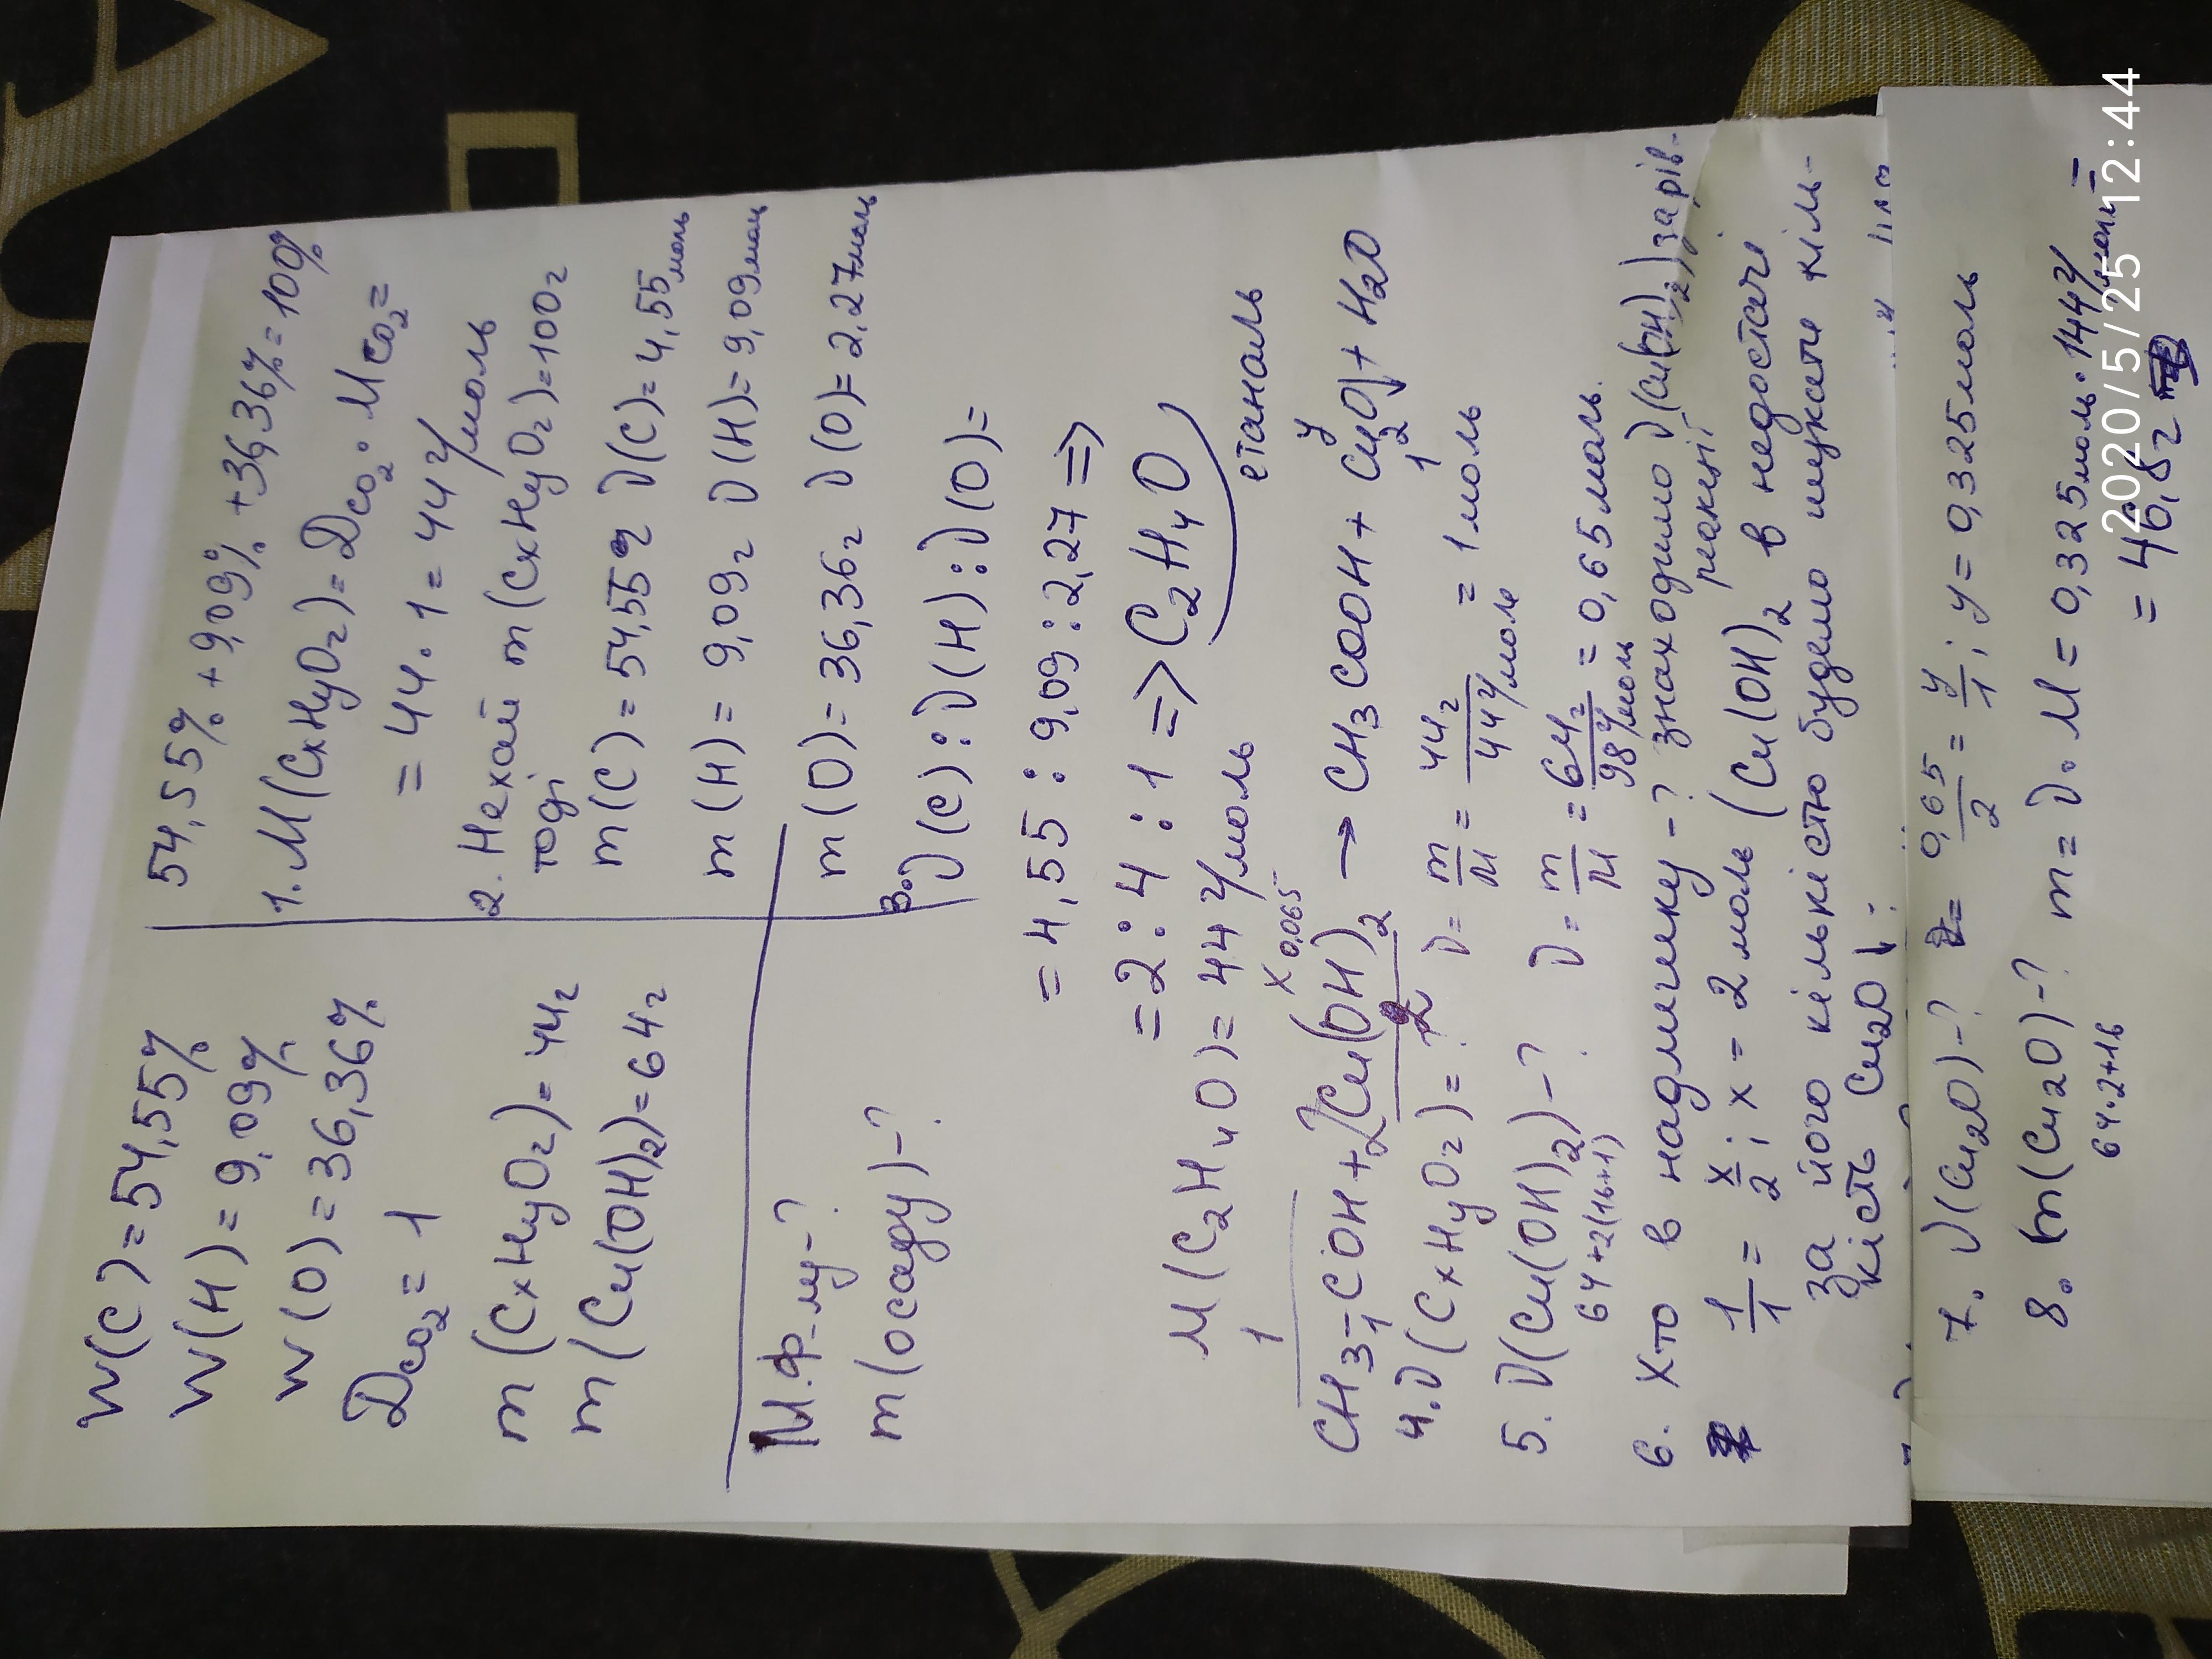 W(C)=54,55%
W(H)=9,09%
W(O)=36,36%
Dco₂=1
m(CxHyOz)=44г
m(Cu(OH)₂)=64г
М.ф-лу-?
m(осаду)-?
54,55%+9,09%+36,36%=100%
1. M(CxHyOz)=Dco₂·Mco₂=
=44·1=44г/моль
2. Нехай m(CxHyOz)=100г
тоді
m(C)=54,55г ν(C)=4,55моль
m(H)=9,09г ν(H)=9,09моль
m(O)=36,36г ν(O)=2,27моль
3. ν(C):ν(H):ν(O)=
=4,55:9,09:2,27=>
=2:4:1=>C₂H₄O
M(C₂H₄O)=44г/моль
етаналь
1 x 0,065 y
CH₃-COH+2Cu(OH)₂→CH₃COOH+Cu₂O↓+H₂O
1 2 1
4. ν(CxHyOz)=? ν=m/M=44г/44г/моль=1моль
5. ν(Cu(OH)₂)-? ν=m/M=64г/98г/моль=0,65моль.
64+2(16+1)
6. Хто в надлишку-? знаходимо ν(Cu(OH)₂) за рів-
реакції
1/1=x/2; x=2моль (Cu(OH)₂ в недостачі
за його кількістю будемо шукати кіль-
кість Cu₂O↓:
7. ν(Cu₂O)-? 0,65/2=y/1; y=0,325моль
8. m(Cu₂O)-? m=ν·M=0,325моль·144г/моль=
64·2+16
=46,8г
2020/5/25 12:44